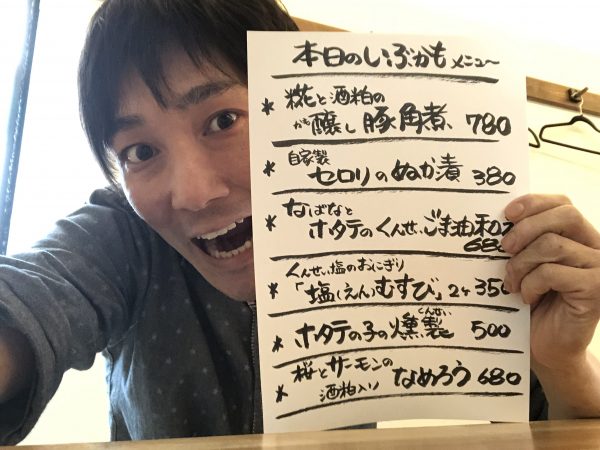 本日のいぶかも メニュー
* 糀と酒粕の
かも醸し 豚角煮 780
* 自家製
セロリのぬか漬 380
* なばなと
ホタテのくんせいごま油和え
680
* くんせい塩のおにぎり
「塩(えん)むすび」2ケ 350
くんせい
* ホタテの子の燻製 500
* 桜とサーモンの
酒粕入り なめろう 680